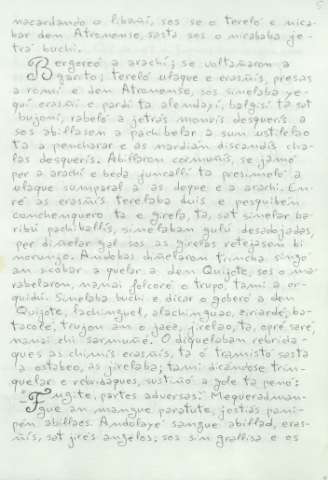 macardando o libañí, sos se o tereló e nica-
bar den Atronense, sasta sos o nicababa je-
tró buchí.
Bergereó a arachí; se voltañaron a
garito; tereló ulaque e erasñís, presas
a romí e den Atronense, sos sinelaba ye-
quí erasñí e pardí ta alendayí, balgisí ta sat
bujoní, rabeló a jetrás monrís desquerís. a
sos abillasen a pachibelar a sun ustilelao
ta a pencharar e as nardian discandís cha-
las desquerís. Abillaron cormuñís, se jamó
per a arachí e beda juncallí ta presimeló a
ulaque sumparal a as deque e a arachí. En-
ré as erasñís terelaba duis e pesquibén
conchenquero ta e girela, ta, sat sinelar ba-
ribú pachiballís, sinelaban gulú desadojadas,
per diñelar gal sos as girelas retejasen bi
norunjo. Andobas diñelaron trincha singó
an acobar a quelar a den Quijote, sos o ma-
rabelaron, nanai folcoré o trupo, tami a or-
quidú. Sinelaba buchí e dicar o goberó a den
Quijote, lachinguel, alachinguao, eriardé, ba-
tacolé, trujon am o jaeé, jirelao, ta, opré saré,
nanai chi sarmuñe. O diquelaban rebrida-
ques as chimís erasñís, ta ó tramistó sasta
a ostabeo, as jirelaba; tami dicándose trin-
quelar e rebridaques, sustiñó a gole ta penó:
-Fugite, partes adversae! Mequeradman-
gue an mangue paratute, jostiás paní-
pén abillaes. Andolaye sangue abillad, eras-
ñís, sat jirés angelos; sos sin grallisa e os